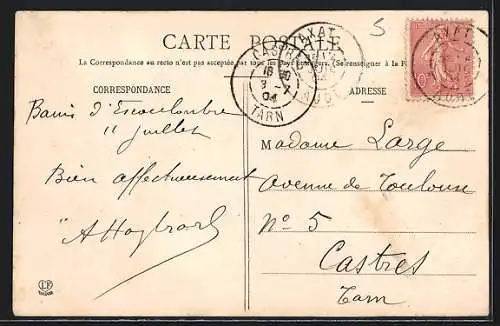 CARTE POSTALE
La Correspondance au recto n'est pas acceptée par tous les Pays étrangers. (Se renseigner à la P
CORRESPONDANCE
ADRESSE
CASTRES
18
9 -7
04
TARN
AXAT
AUDE
AXAT
10
5
Bains d'Escouloubre
11 juillet
Bien affectueusement
Madame Large
Avenue de Toulouse
N° 5
Castres
Tarn